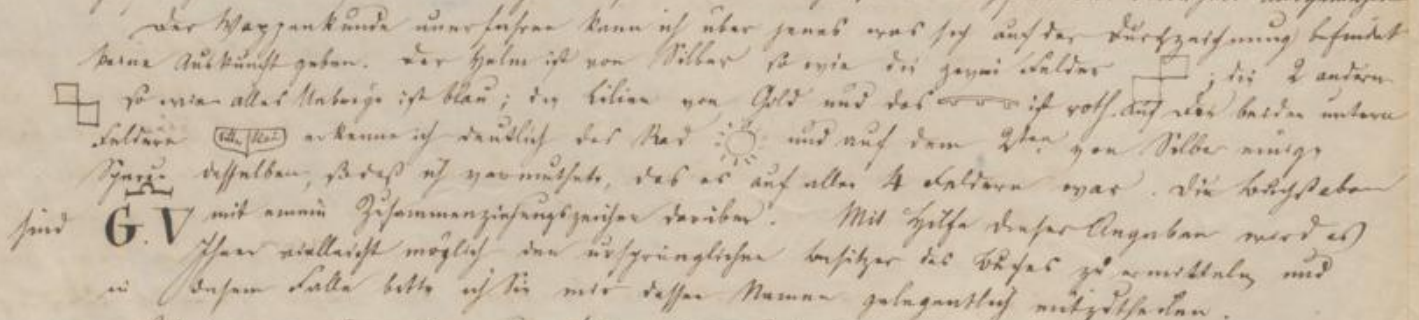 Der Wappenkunde unerfahren kann ich über jenes was sich auf der Durchzeichnung befindet
keine Auskunft geben. Der Helm ist von Silber so wie die zwei Felder ; die 2 andern
so wie alles Uebrige ist blau; die Lilien von Gold und das ist roth. Auf den beiden untern
Feldern erkenne ich deutlich das Rad und auf dem 2ten von Silber einige
Spuren desselben, so daß ich vermuthete, das es auf allen 4 Feldern war. Die Buchstaben
sind G.V mit einem Zusammenziehungszeichen darüber. Mit Hilfe dieser Angaben wird es
Ihnen vielleicht möglich den ursprünglichen Besitzer des Buches zu ermitteln und
in diesem Falle bitte ich Sie mir dessen Namen gelegentlich mitzutheilen.